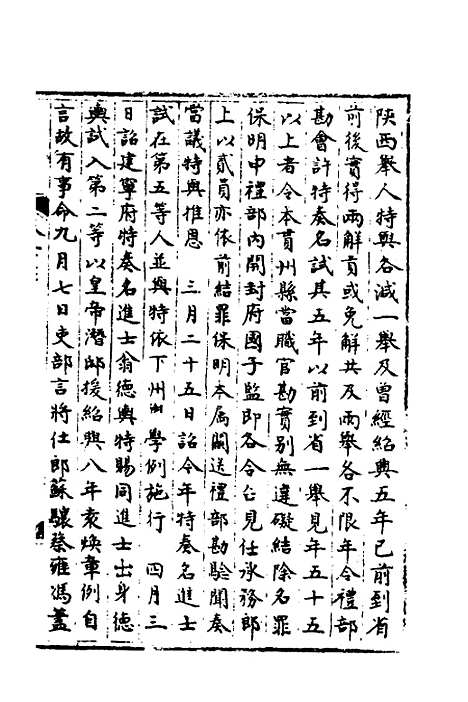 陝西舉人特與各減一舉及曾經紹興五年已前到省
前後實得兩解貢或免解共及兩舉各不限年令禮部
勘會許特奏名試其五年以前到省一舉見年五十五
以上者令本貫州縣當職官勘實別無違礙結除名罪
保明申禮部內開封府國子監即各令台見任承務郎
上以貳員亦依前結罪保明本属關送禮部勘驗聞奏
當議特與推恩　三月二十五日詔今年特奏名進士
試在第五等人並與特依下州州學例施行　四月三
日詔建寧府特奏名進士翁德輿特賜同進士出身德
輿試入第二等以皇帝潛邸援紹興八年袁煥章例自
言故有事命九月七日吏部言將仕郎蘇驤蔡雍馮蓋